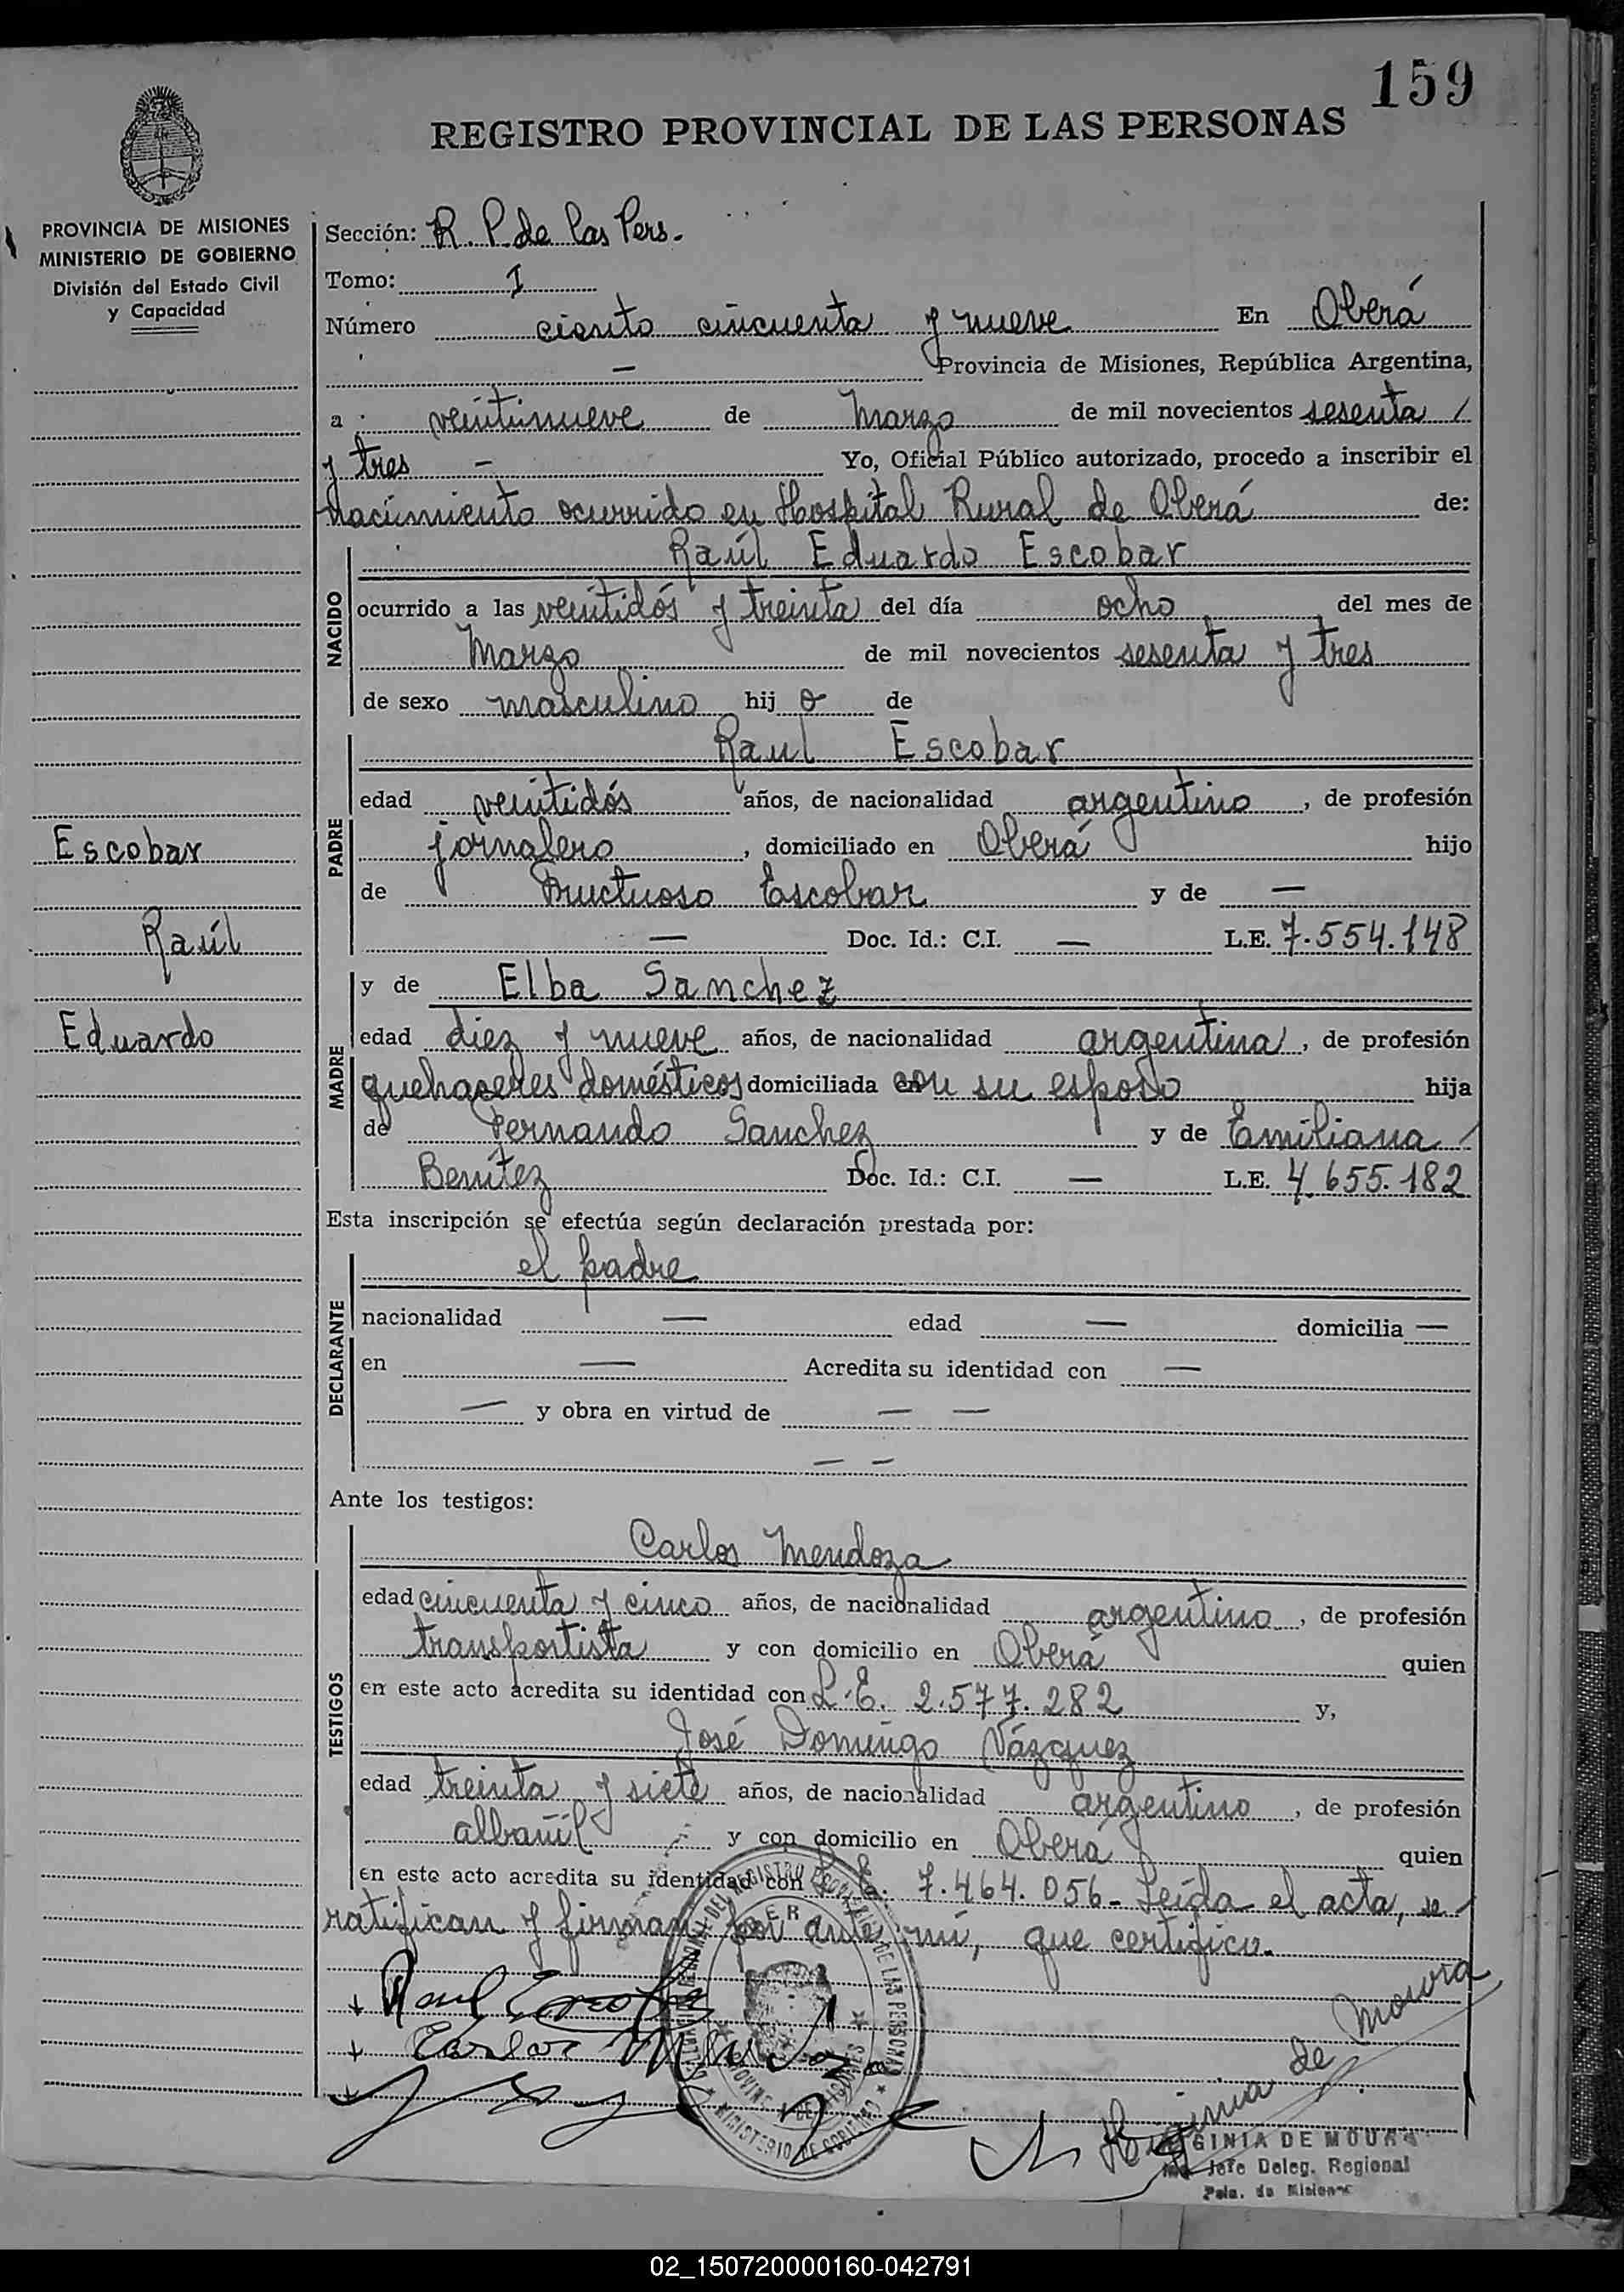 159
REGISTRO PROVINCIAL DE LAS PERSONAS
PROVINCIA DE MISIONES
MINISTERIO DE GOBIERNO
División del Estado Civil
y Capacidad
Sección: R. P. de las Pers.
Tomo: I
Número ciento cincuenta y nueve En Oberá
— Provincia de Misiones, República Argentina,
a veintinueve de Marzo de mil novecientos sesenta /
y tres — Yo, Oficial Público autorizado, procedo a inscribir el
nacimiento ocurrido en Hospital Rural de Oberá de:
NACIDO
Raúl Eduardo Escobar
ocurrido a las veintidós y treinta del día ocho del mes de
Marzo de mil novecientos sesenta y tres
de sexo masculino hij o de
PADRE
Raul Escobar
edad veintidós años, de nacionalidad argentino, de profesión
jornalero, domiciliado en Oberá hijo
de Fructuoso Escobar y de —
— Doc. Id.: C.I. — L.E. 7.554.148
Escobar
Raúl
Eduardo
MADRE
y de Elba Sanchez
edad diez y nueve años, de nacionalidad argentina, de profesión
quehaceres domésticos domiciliada con su esposo hija
de Fernando Sanchez y de Emiliana /
Benítez Doc. Id.: C.I. — L.E. 4.655.182
Esta inscripción se efectúa según declaración prestada por:
DECLARANTE
el padre
nacionalidad — edad — domicilia —
en — Acredita su identidad con —
— y obra en virtud de — —
— —
Ante los testigos:
TESTIGOS
Carlos Mendoza
edad cincuenta y cinco años, de nacionalidad argentino, de profesión
transportista y con domicilio en Oberá quien
en este acto acredita su identidad con L.E. 2.577.282 y,
José Domingo Vázquez
edad treinta y siete años, de nacionalidad argentino, de profesión
albañil y con domicilio en Oberá quien
en este acto acredita su identidad con L.E. 7.464.056- Leída el acta, se
ratifican y firman por ante mí, que certifico.
Raul Escobar
Carlos Mendoza
Higinia de Moura
GINIA DE MOURA
Jefe Deleg. Regional
Pcia. de Misiones
MINISTERIO DE GOBIERNO
DE LAS PERSONAS
02_150720000160-042791